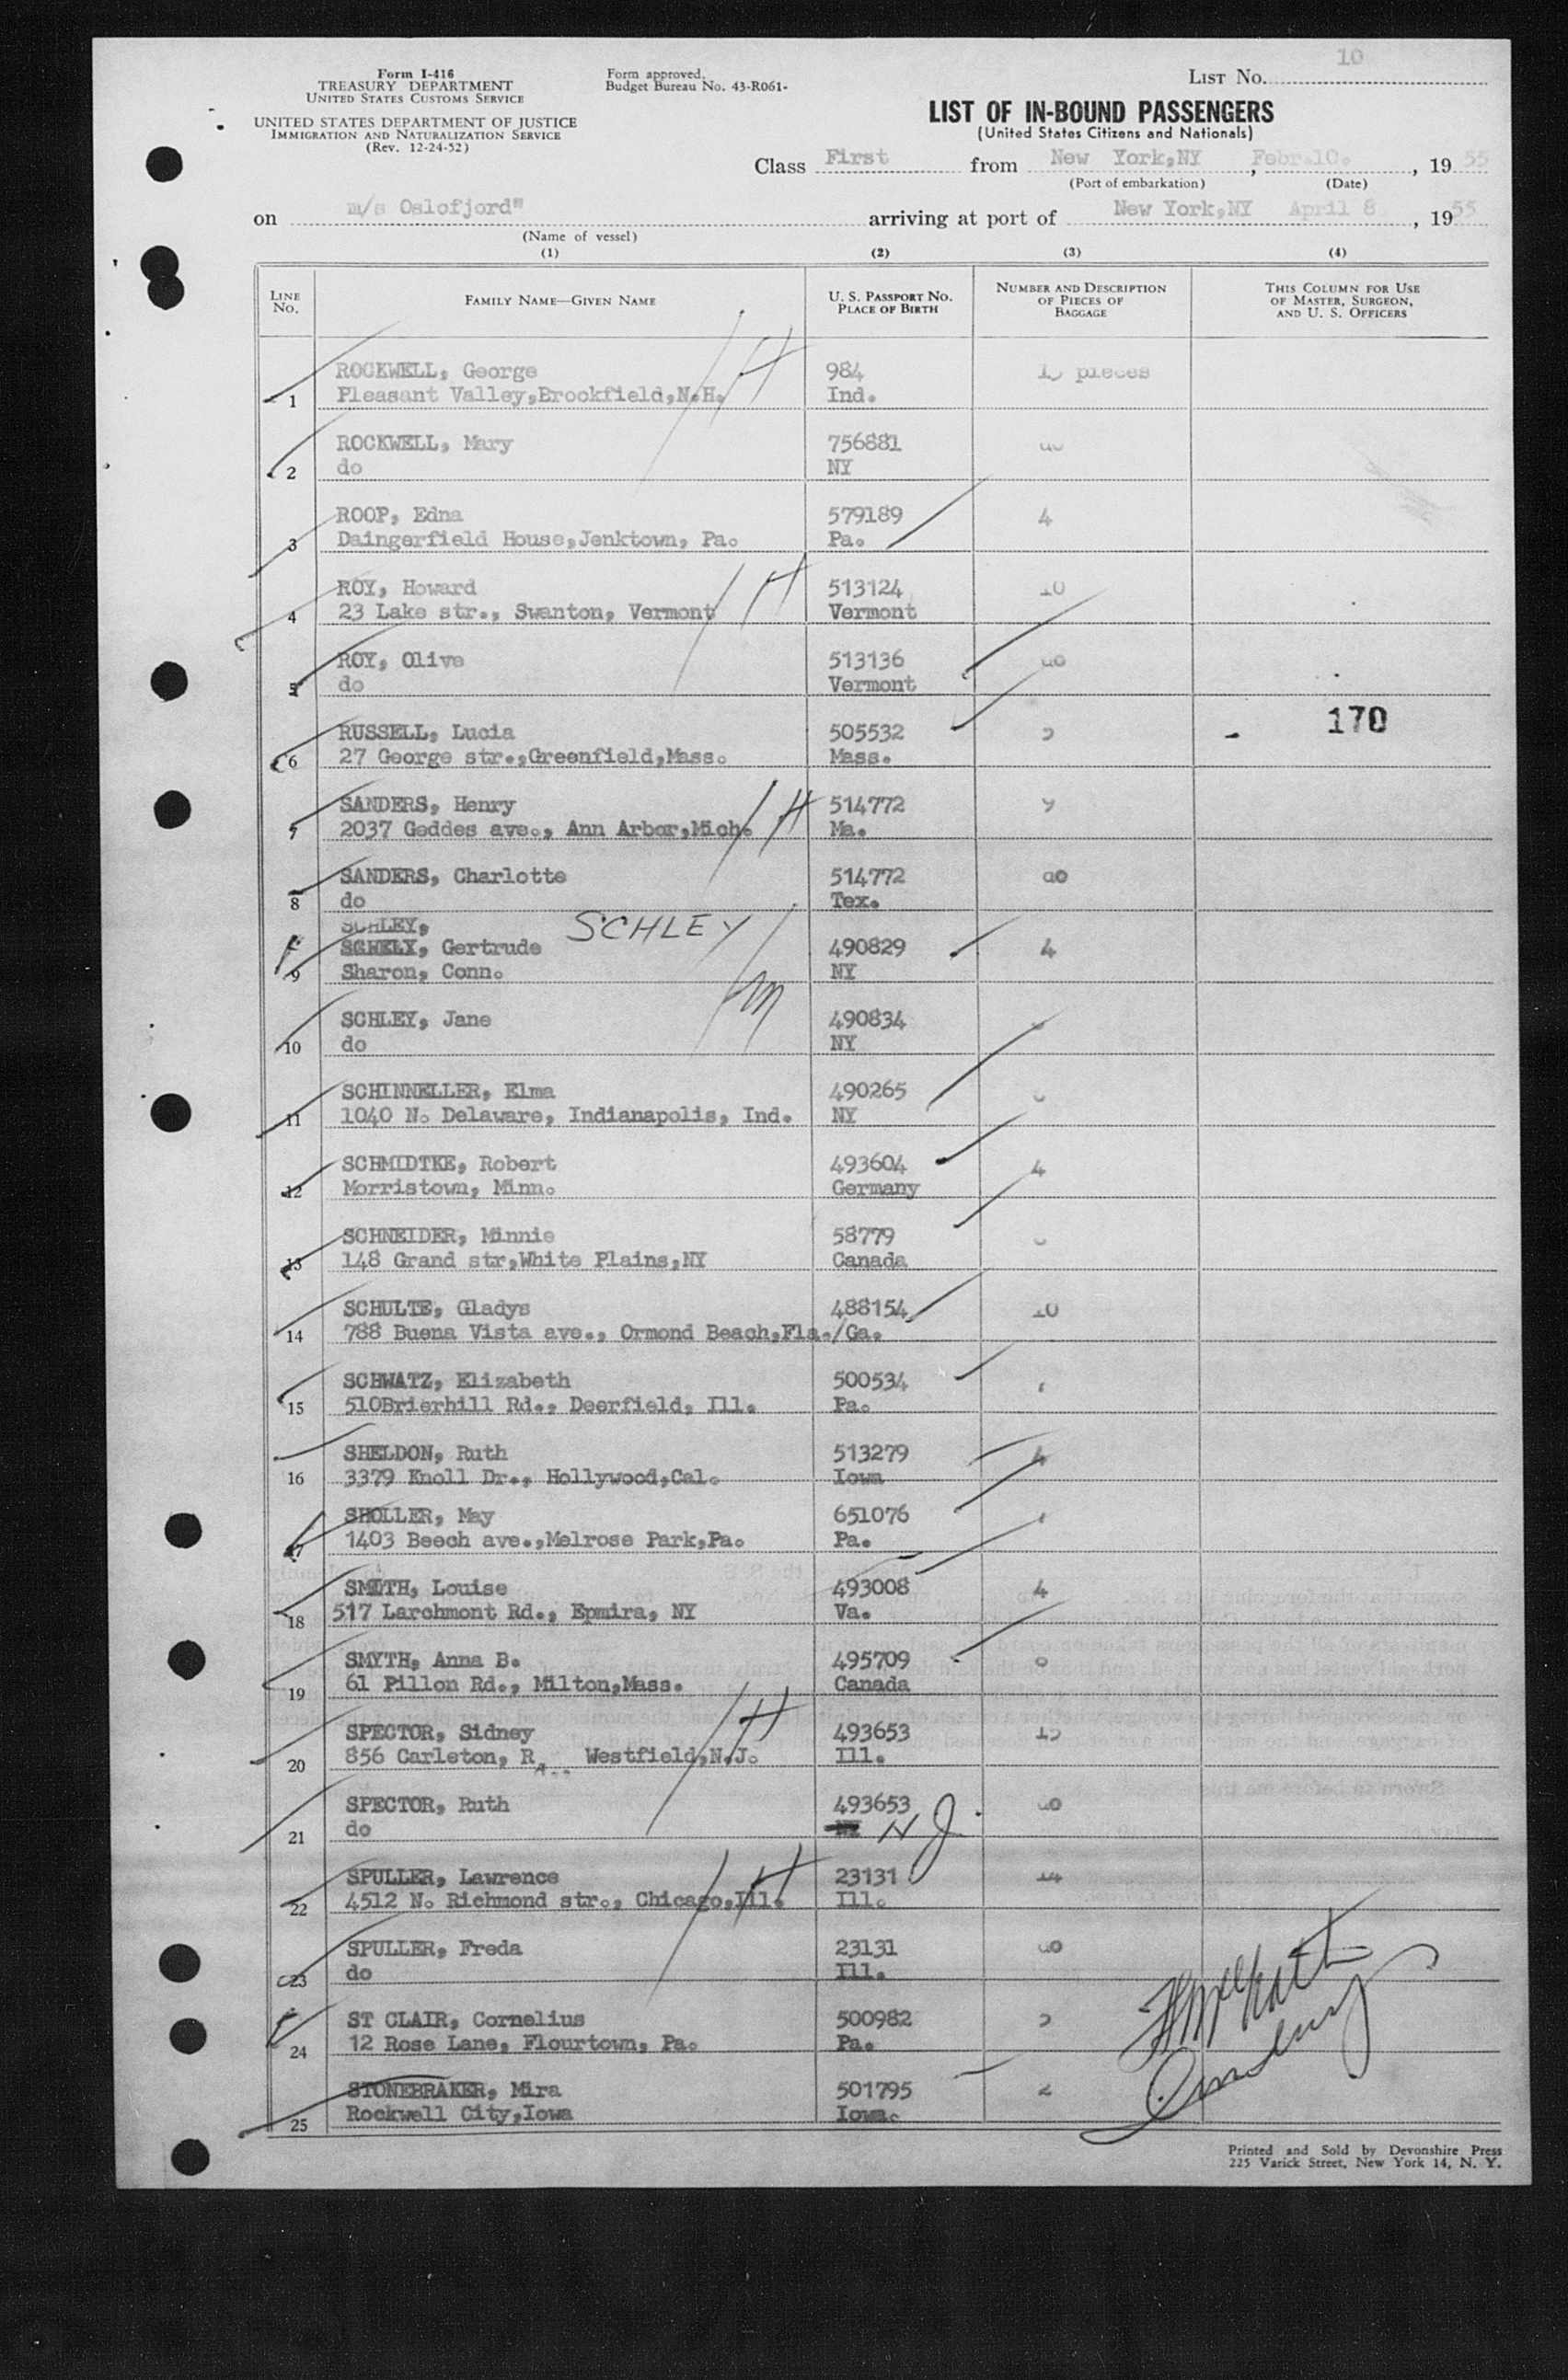 10
Form I-416
TREASURY DEPARTMENT
UNITED STATES CUSTOMS SERVICE
UNITED STATES DEPARTMENT OF JUSTICE
IMMIGRATION AND NATURALIZATION SERVICE
(Rev. 12-24-52)
Form approved.
Budget Bureau No. 43-R061-
LIST NO.
LIST OF IN-BOUND PASSENGERS
(United States Citizens and Nationals)
Class First from New York,NY, Febr.10., 1955
(Port of embarkation) (Date)
on m/s Oslofjord" arriving at port of New York,NY April 8, 1955
(Name of vessel)
(1) (2) (3) (4)
LINE NO. FAMILY NAME—GIVEN NAME U. S. PASSPORT NO. PLACE OF BIRTH NUMBER AND DESCRIPTION OF PIECES OF BAGGAGE THIS COLUMN FOR USE OF MASTER, SURGEON, AND U. S. OFFICERS
ROCKWELL, George 984 pieces
1 Pleasant Valley,Brookfield,N.H. Ind.
ROCKWELL, Mary 756881 do
2 do NY
ROOP, Edna 579189 4
3 Daingerfield House,Jenktown, Pa. Pa.
ROY, Howard 513124 10
4 23 Lake str., Swanton, Vermont Vermont
ROY, Olive 513136 do
5 do Vermont
RUSSELL, Lucia 505532 170
6 27 George str.,Greenfield,Mass. Mass.
SANDERS, Henry 514772
7 2037 Geddes ave., Ann Arbor,Mich. Ma.
SANDERS, Charlotte 514772 do
8 do Tex.
SCHLEY, SCHLEY
SCHELY, Gertrude 490829 4
9 Sharon, Conn. NY
SCHLEY, Jane 490834
10 do NY
SCHINNELLER, Elma 490265
11 1040 N. Delaware, Indianapolis, Ind. NY
SCHMIDTKE, Robert 493604 4
12 Morristown, Minn. Germany
SCHNEIDER, Minnie 58779
13 148 Grand str,White Plains,NY Canada
SCHULTE, Gladys 488154 10
14 788 Buena Vista ave., Ormond Beach,Fla./Ga.
SCHWATZ, Elizabeth 500534
15 510Brierhill Rd., Deerfield, Ill. Pa.
SHELDON, Ruth 513279 4
16 3379 Knoll Dr., Hollywood,Cal. Iowa
SHOLLER, May 651076
17 1403 Beech ave.,Melrose Park,Pa. Pa.
SMITH, Louise 493008 4
18 517 Larchmont Rd., Epmira, NY Va.
SMYTH, Anna B. 495709
19 61 Pillon Rd., Milton,Mass. Canada
SPECTOR, Sidney 493653 15
20 856 Carleton, R Westfield,N.J. Ill.
SPECTOR, Ruth 493653 do
21 do NJ
SPULLER, Lawrence 23131 14
22 4512 N. Richmond str., Chicago,Ill. Ill.
SPULLER, Freda 23131 do
23 do Ill.
ST CLAIR, Cornelius 500982
24 12 Rose Lane, Flourtown, Pa. Pa.
STONEBRAKER, Mira 501795 2
25 Rockwell City,Iowa Iowa.
Printed and Sold by Devonshire Press
225 Varick Street, New York 14, N. Y.